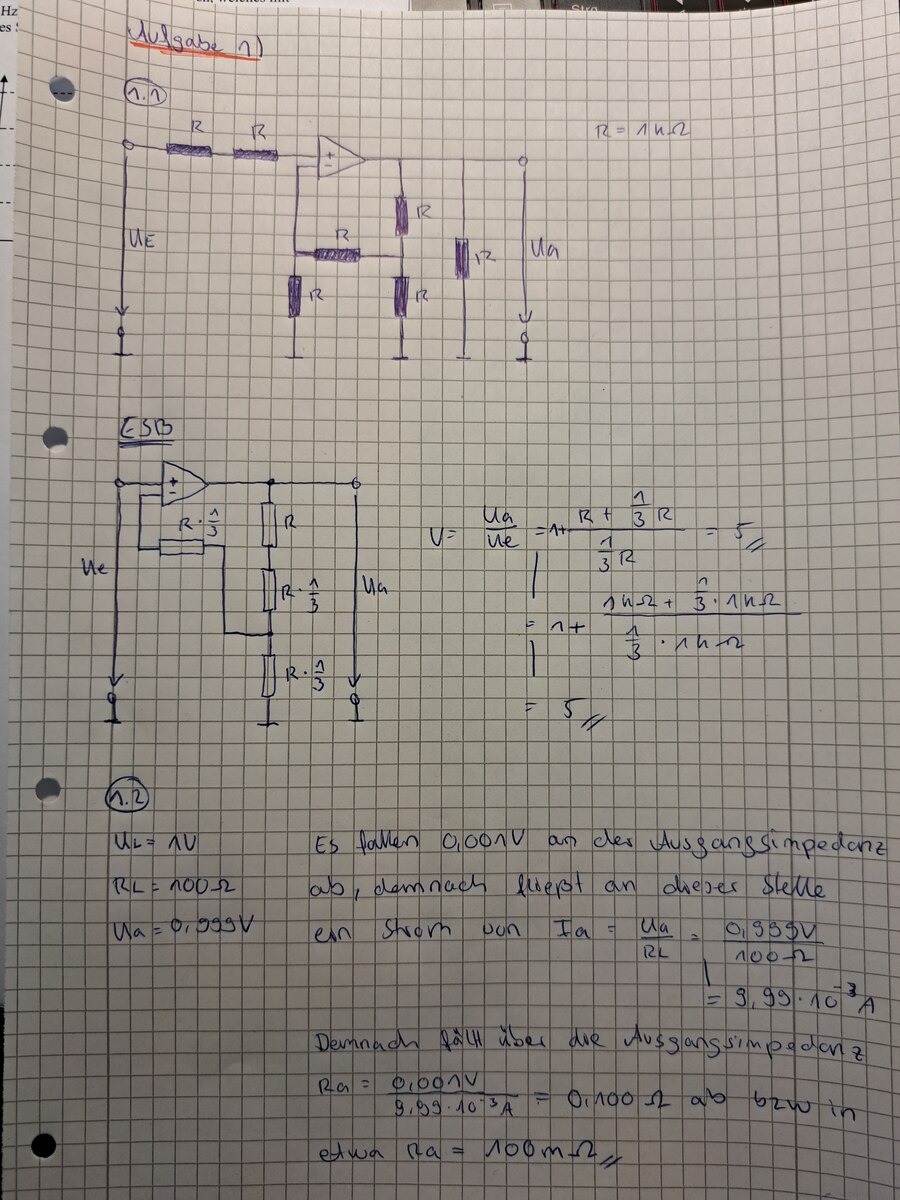 Hz
es
Stro
Aufgabe 1)
1.1
R R + - R = 1kΩ
R
UE R R Ua
R R
ESB
+ -
R · 1/3 R
Ue R · 1/3 Ua
R · 1/3
V = Ua/Ue = 1 + (R + 1/3 R)/(1/3 R) = 5
= 1 + (1kΩ + 1/3 · 1kΩ)/(1/3 · 1kΩ)
= 5
1.2
UL = 1V Es fallen 0,001V an der Ausgangsimpedanz
RL = 100Ω ab, demnach fliept an dieser Stelle
Ua = 0,999V ein Strom von Ia = Ua/RL = 0,999V/100Ω
= 9,99 · 10⁻³ A
Demnach fällt über die Ausgangsimpedanz
Ra = 0,001V/9,99 · 10⁻³A = 0,100 Ω ab bzw in
etwa Ra = 100mΩ